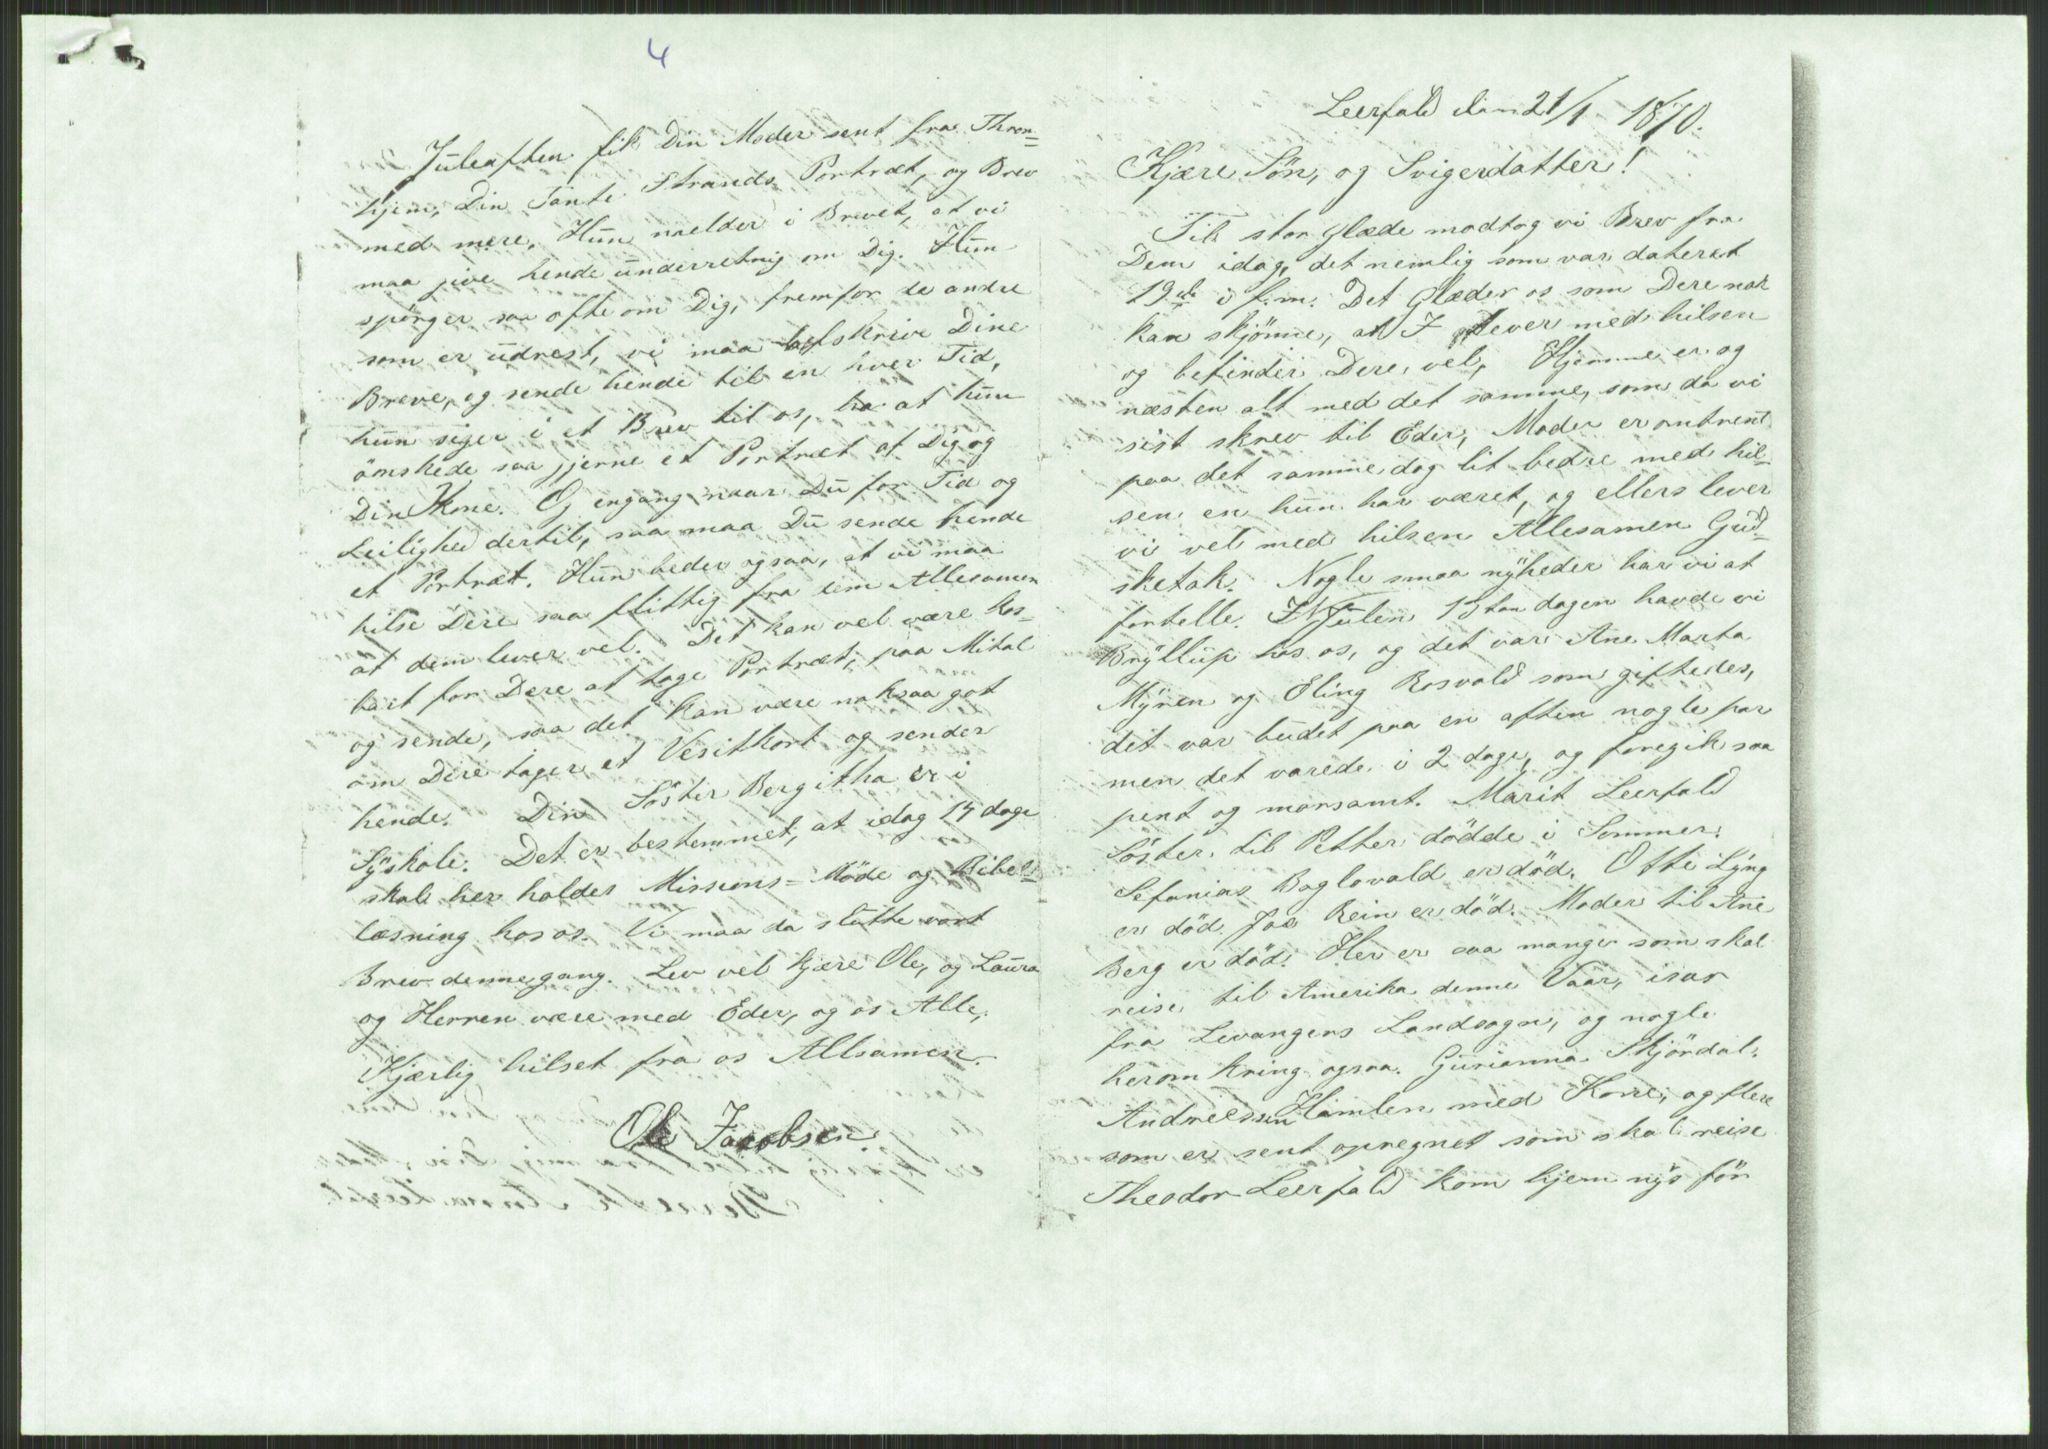 4
Leerfald den 21/1 1870.
Kjære Sön, og Svigerdatter!
Til stor Glæde modtog vi Brev fra
Dem idag, det nemlig som var dateret
19de i f.m. Det Glæder os som Dere nok
kan skjönne, at I lever med hilsen
og befinder Dere vel, Hjemme er og
næsten alt med det samme, som da vi
sist skrev til Eder, Moder er omtrent
paa det samme dog lit bedre med hil-
sen en hun har været, og ellers lever
vi vel med hilsen Allesamen Gud-
sketak. Nogle smaa nyheder har vi at
fortelle. I Julen 13tan dagen havde vi
Bryllup hos os, og det var Ane Marta
Myren og Eling Rosvald som giftedes,
det var budet paa en aften nogle par
men det varede i 2 dage, og foregik saa
pent og morsamt. Marit Leerfald
Söster til Petter dödde i Sommer.
Sefanias Baglovald er död. Ofti Lyng
er död. Jaa Rein er död. Moder til Ane
Berg er död. Her er saa mange som skal
reise til Amerika denne Vaar, isar
fra Levangers Landsogn, og nogle
herom kring ogsaa. Gurianna Skjördal.
Andreessen Hamlen med Kone, og flere
som er sent opregnet som skal reise
Theodor Leerfald kom hjem nys för
Juleaften fik Din Moder sent fra Thron=
hjem, Din Tante Strands Portræt, og Brev
med mere. Hun melder i Brevet, at vi
maa jive hende underretnig om Dig. Hun
spörger saa ofte om Dig, fremfor de andre
som er udrest, vi maa afskrive Dine
Breve, og sende hende til en hver Tid,
hun siger i et Brev til os, at hun
önskede saa jjerne et Portræt af Dig og
Din Kone. Og engang naar Du for Tid og
Leilighed dertil, saa maa Du sende hende
et Portræt. Hun beder ogsaa, at vi maa
hilse Dere saa flittig fra dem Allesamen
at dem lever vel. Det kan vel være kos-
bart for Dere at tage Portræt, paa Mital
og sende, saa det kan være nok saa got
om Dere tager et Vesitkort og sender
hende. Din Söster Bergitha er i
Syskole. Det er bestemmet, at idag 14 dage
skal her holdes Missions-Möde og Bibel-
læsning hos os. Vi maa da slutte vort
Brev denne gang. Lev vel kjære Ole, og Laura
og Herren være med Eder, og os Alle,
Kjærlig hilset fra os Allsamen.
Ole Jacobsen